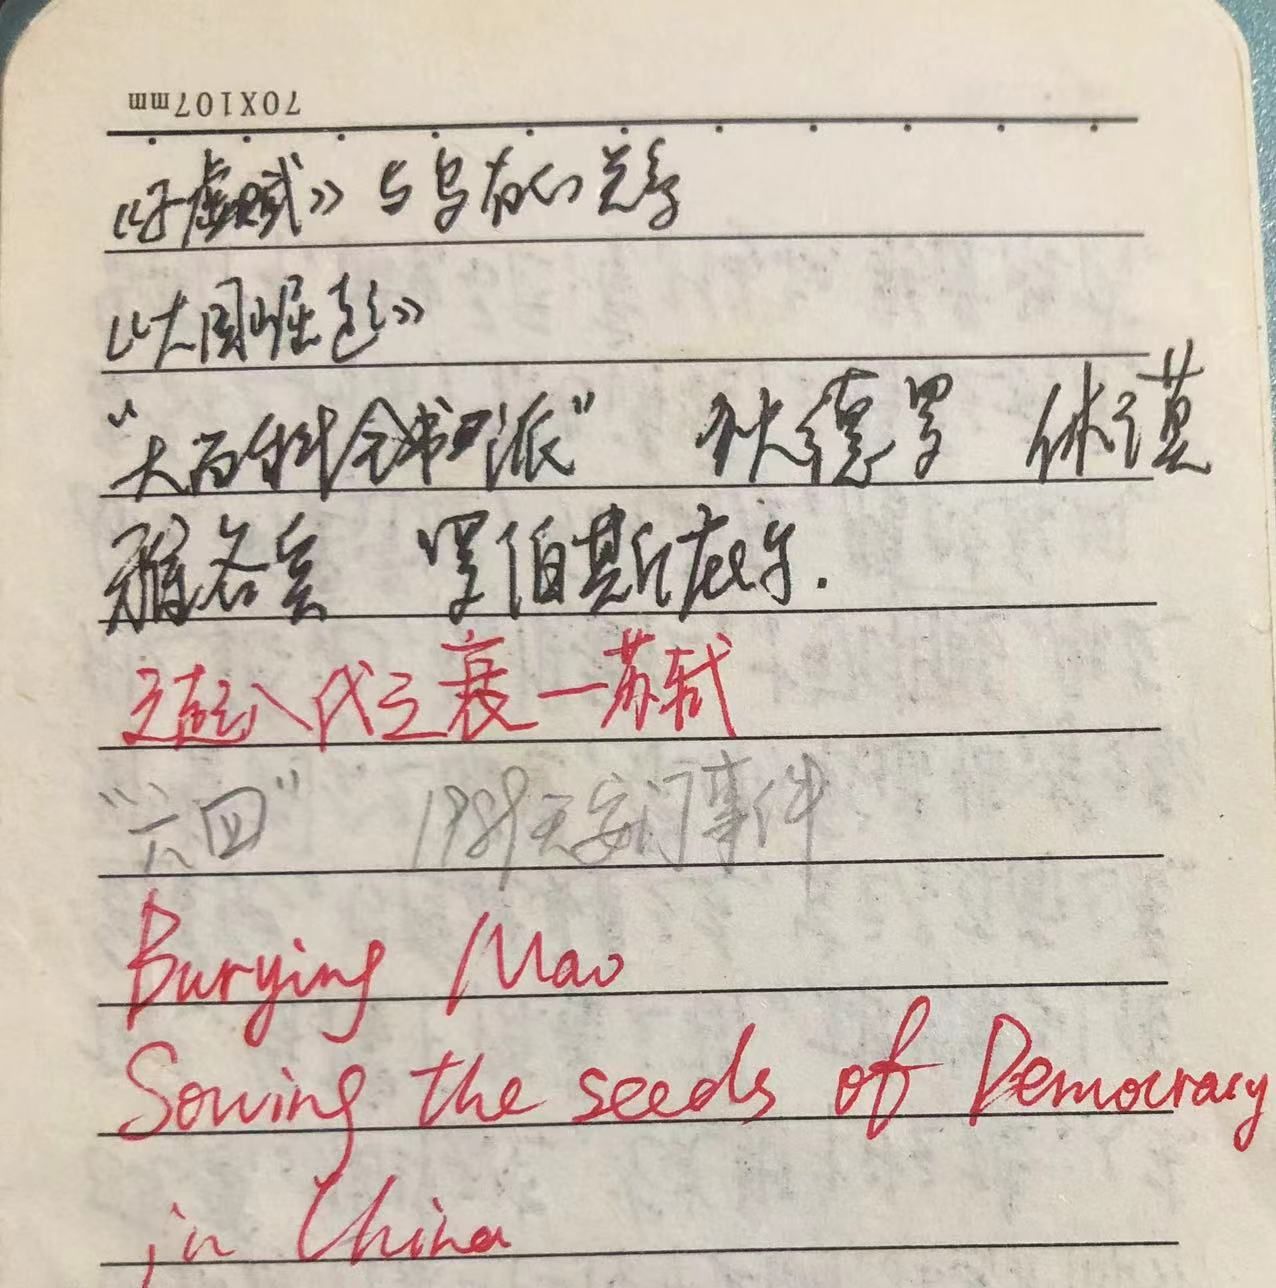 70X107mm
《子虚赋》与乌有的关系
《大国崛起》
“大百科全书派” 狄德罗 休谟
雅各宾 罗伯斯庇尔.
文起八代之衰—苏轼
“六四” 1989天安门事件
Burying Mao
Sowing the seeds of Democracy
in China